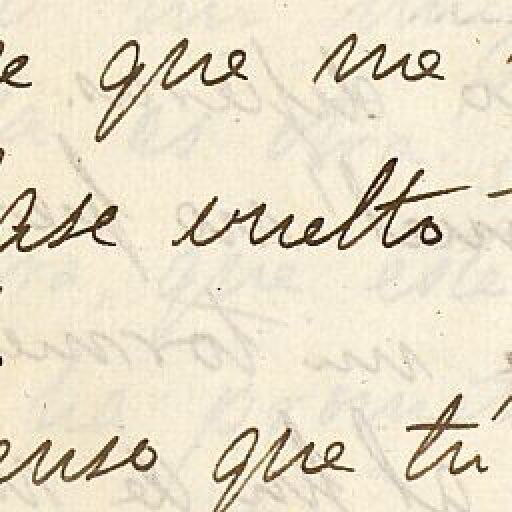 e que me
ase vuelto
enso que tú